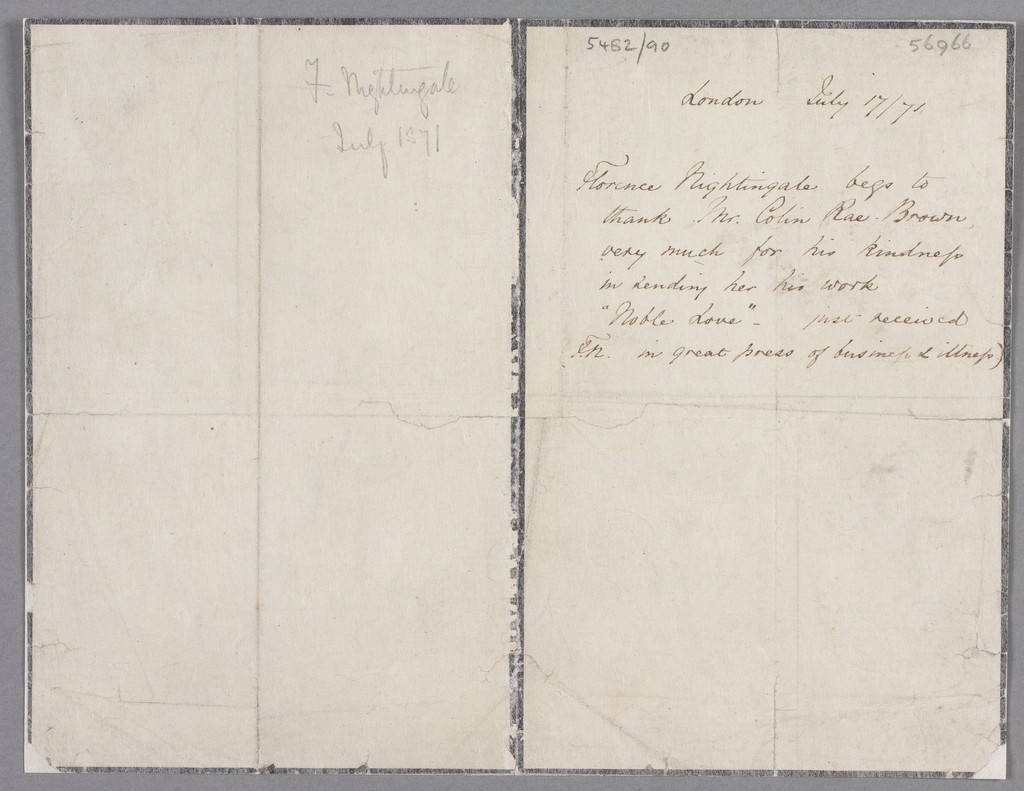 F. Nightingale
July 1871
5482/90
56966
London July 17/71
Florence Nightingale begs to
thank Mr. Colin Rae-Brown
very much for his kindness
in sending her his work
"Noble Love" - just received
(F.N. in great press of business & illness)